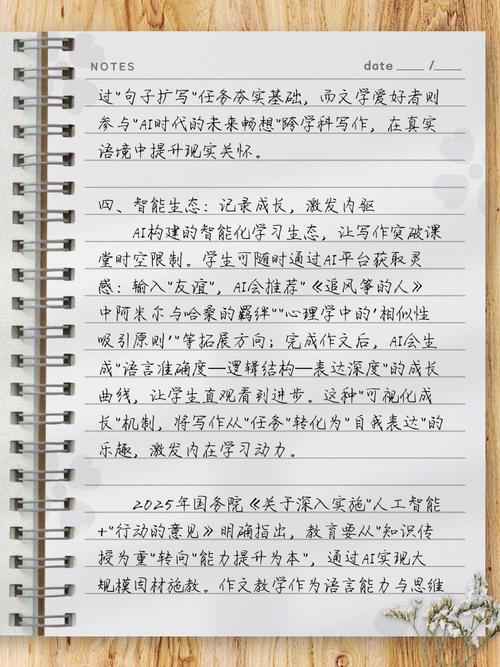 NOTES
date ____ /____
过"句子扩写"任务夯实基础，而文学爱好者则
参与"AI时代的未来畅想"跨学科写作，在真实
语境中提升现实关怀。
四、智能生态：记录成长，激发内驱
AI构建的智能化学习生态，让写作突破课
堂时空限制。学生可随时通过AI平台获取灵
感：输入"友谊"，AI会推荐"《追风筝的人》
中阿米尔与哈桑的羁绊""心理学中的'相似性
吸引原则'"等拓展方向；完成作文后，AI会生
成"语言准确度—逻辑结构—表达深度"的成长
曲线，让学生直观看到进步。这种"可视化成
长"机制，将写作从"任务"转化为"自我表达"的
乐趣，激发内在学习动力。
2025年国务院《关于深入实施"人工智能
+"行动的意见》明确指出，教育要从"知识传
授为重"转向"能力提升为本"，通过AI实现大
规模因材施教。作文教学作为语言能力与思维